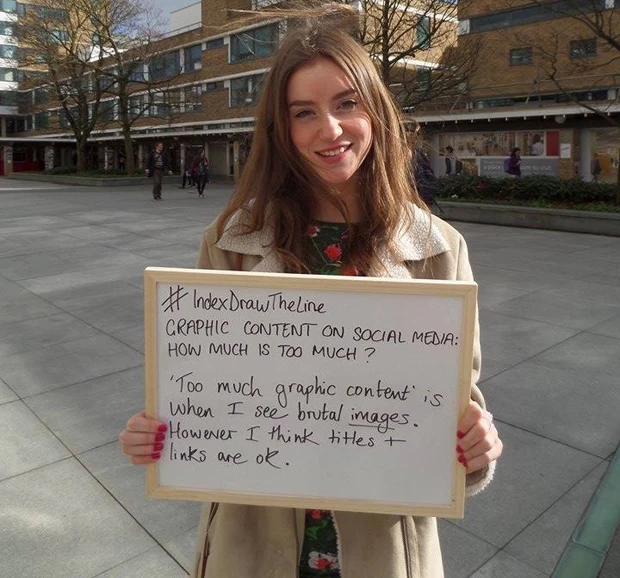 #IndexDrawTheLine
GRAPHIC CONTENT ON SOCIAL MEDIA:
HOW MUCH IS TOO MUCH?
'Too much graphic content' is
when I see brutal images.
However I think titles +
links are ok.